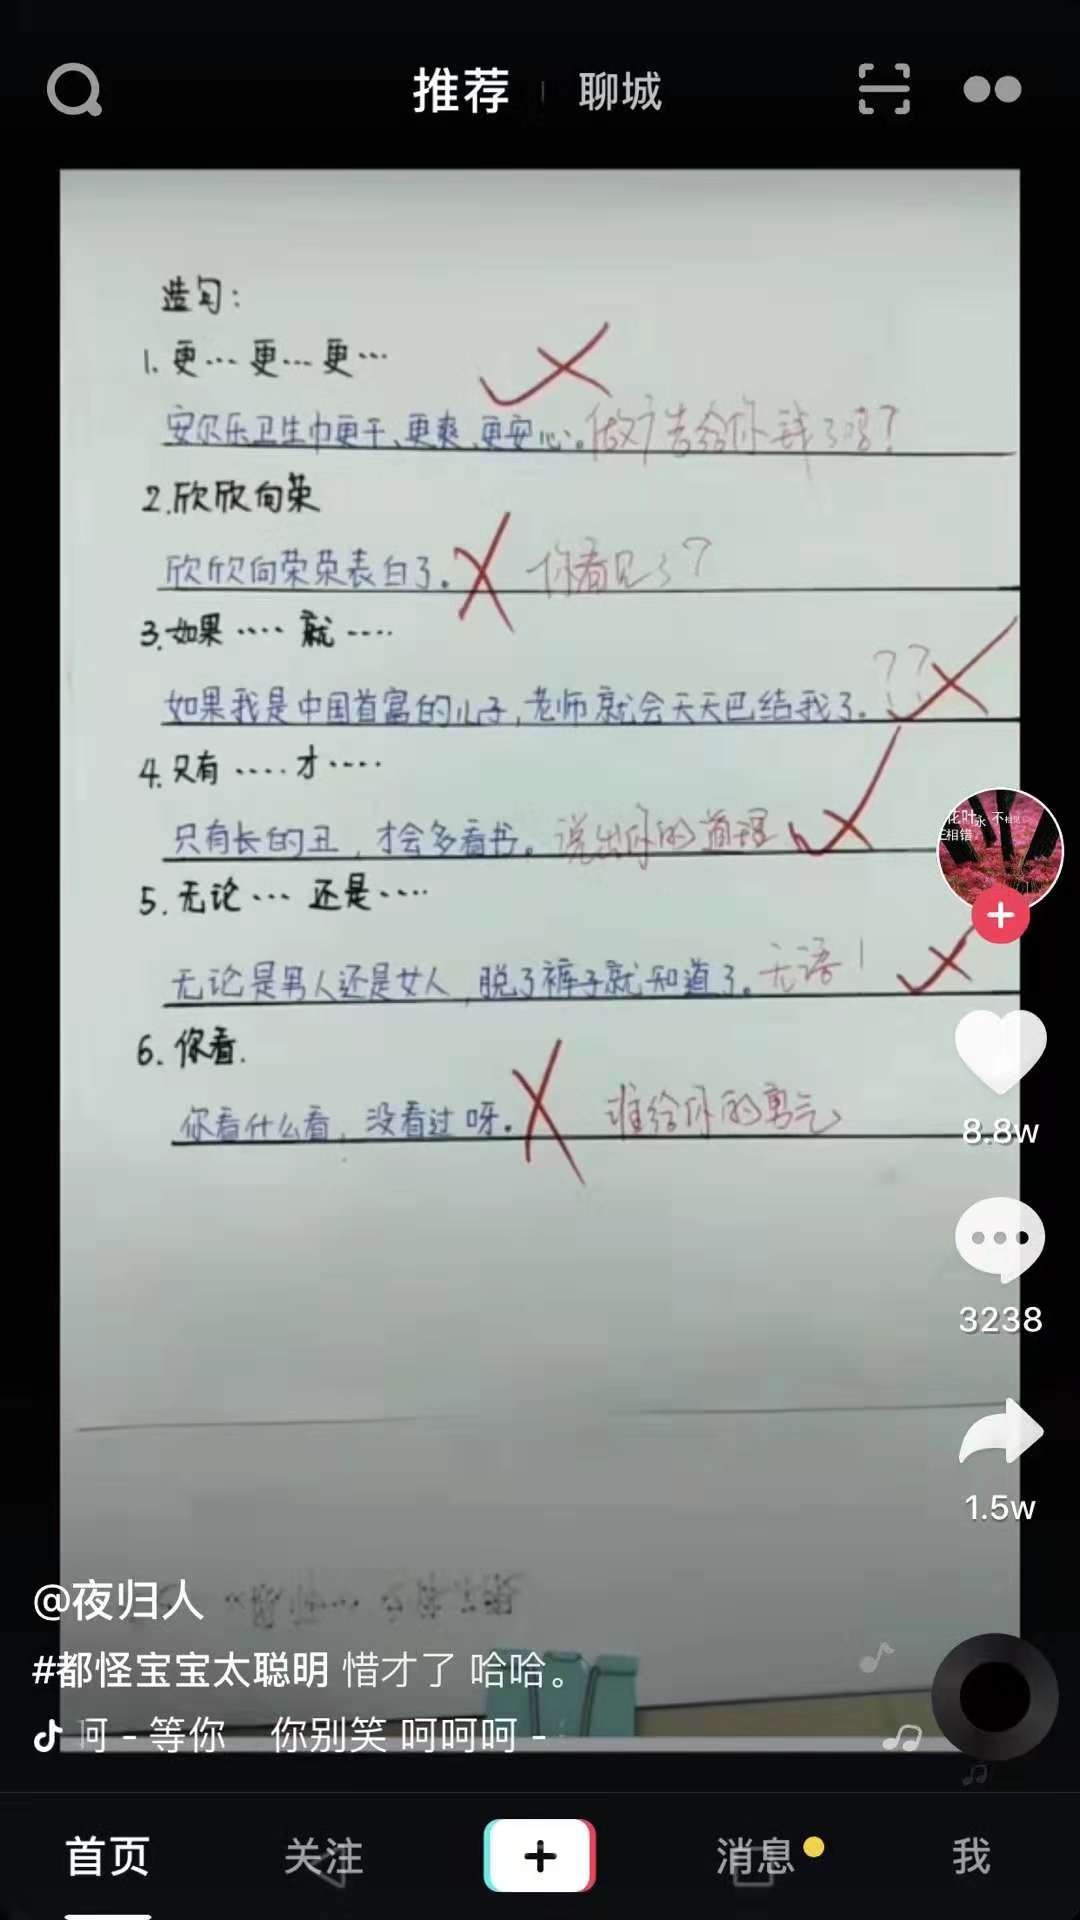 推荐
聊城
造句：
1. 更… 更… 更…
安尔乐卫生巾更干、更爽、更安心。做广告给你钱了吗？
2. 欣欣向荣
欣欣向荣荣表白了。你看见了？
3. 如果 …… 就 ……
如果我是中国首富的儿子，老师就会天天巴结我了。？？
4. 只有 …… 才 ……
只有长的丑，才会多看书。说出你的道理
5. 无论 … 还是 ……
无论是男人还是女人，脱了裤子就知道了。无语！
6. 你看.
你看什么看，没看过呀。谁给你的勇气
花叶永不相见
生相错
8.8w
3238
1.5w
@夜归人
#都怪宝宝太聪明 惜才了 哈哈。
呵 - 等你 你别笑 呵呵呵 -
首页
关注
消息
我